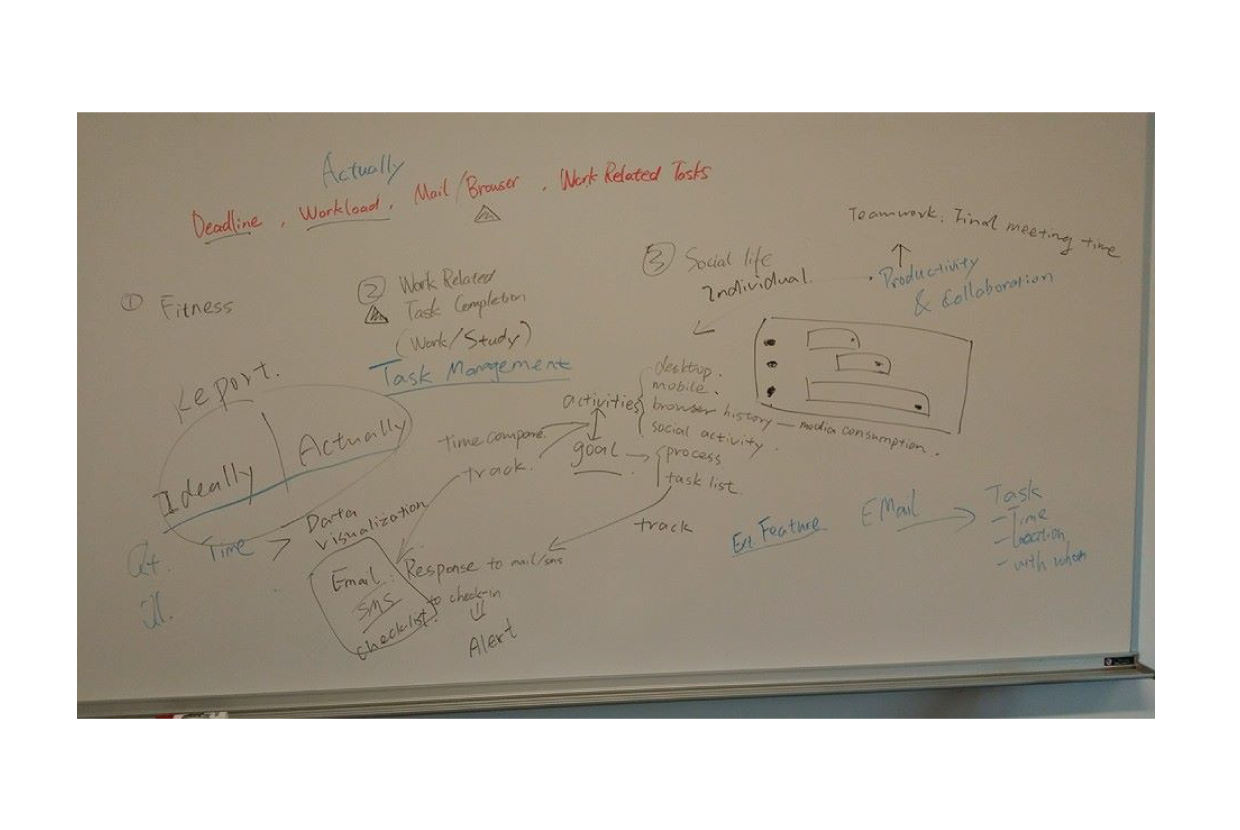 Actually
Deadline, Workload, Mail/Browser, Work Related Tasks
① Fitness
② Work Related
Task Completion
(Work/Study)
Task Management
③ Social life
Individual
Productivity
& Collaboration
Teamwork: Final meeting time
Report.
Ideally
Actually
Time > Data
visualization
time compare.
track.
activities
desktop.
mobile.
browser history — media consumption.
social activity.
goal → process
task list
track
Email: Response to mail/sms
SMS to check-in
checklist.
Alert
Feature
EMail → Task
- Time
- Location
- with whom